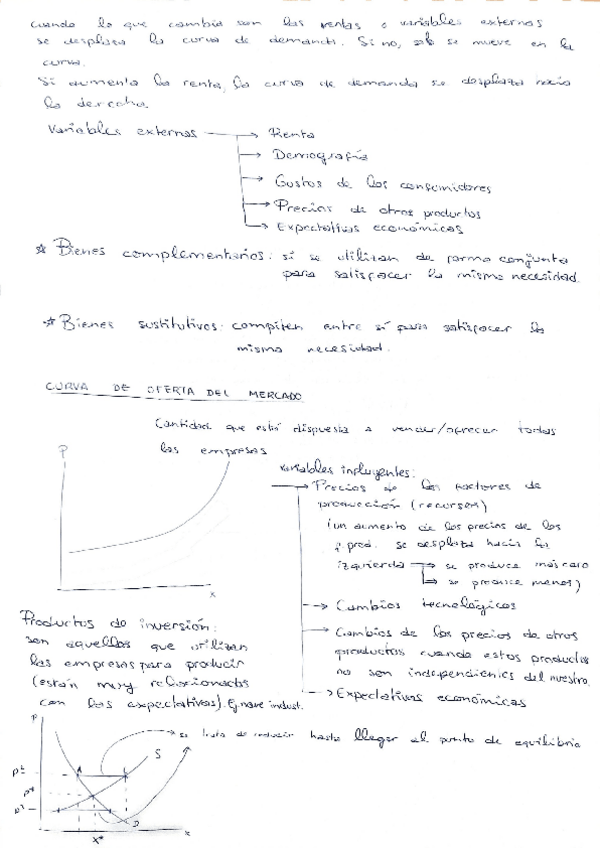 cuando lo que cambia son las rentas o variables externas
se desplaza la curva de demanda. Si no, solo se mueve en la
curva.
Si aumenta la renta, la curva de demanda se desplaza hacia
la derecha.
Variables externas → Renta
→ Demografía
→ Gustos de los consumidores
→ Precios de otros productos
→ Expectativas económicas
* Bienes complementarios: si se utilizan de forma conjunta
para satisfacer la misma necesidad.
* Bienes sustitutivos: compiten entre sí para satisfacer la
misma necesidad.
CURVA DE OFERTA DEL MERCADO
Cantidad que está dispuesta a vender/ofrecer todas
las empresas
P
x
variables influyentes:
→ Precios de los factores de
producción (recursos)
(un aumento de los precios de los
f. prod. se desplaza hacia la
izquierda → se produce más caro
→ se produce menos)
→ Cambios tecnológicos
→ Cambios de los precios de otros
productos cuando estos productos
no son independientes del nuestro.
→ Expectativas económicas
Productos de inversión:
son aquellos que utilizan
las empresas para producir
(están muy relacionados
con las expectativas). Ej. nave indust.
se trata de reducir hasta llegar al punto de equilibrio
P
A
S
P²
P*
P¹
D
x*
x